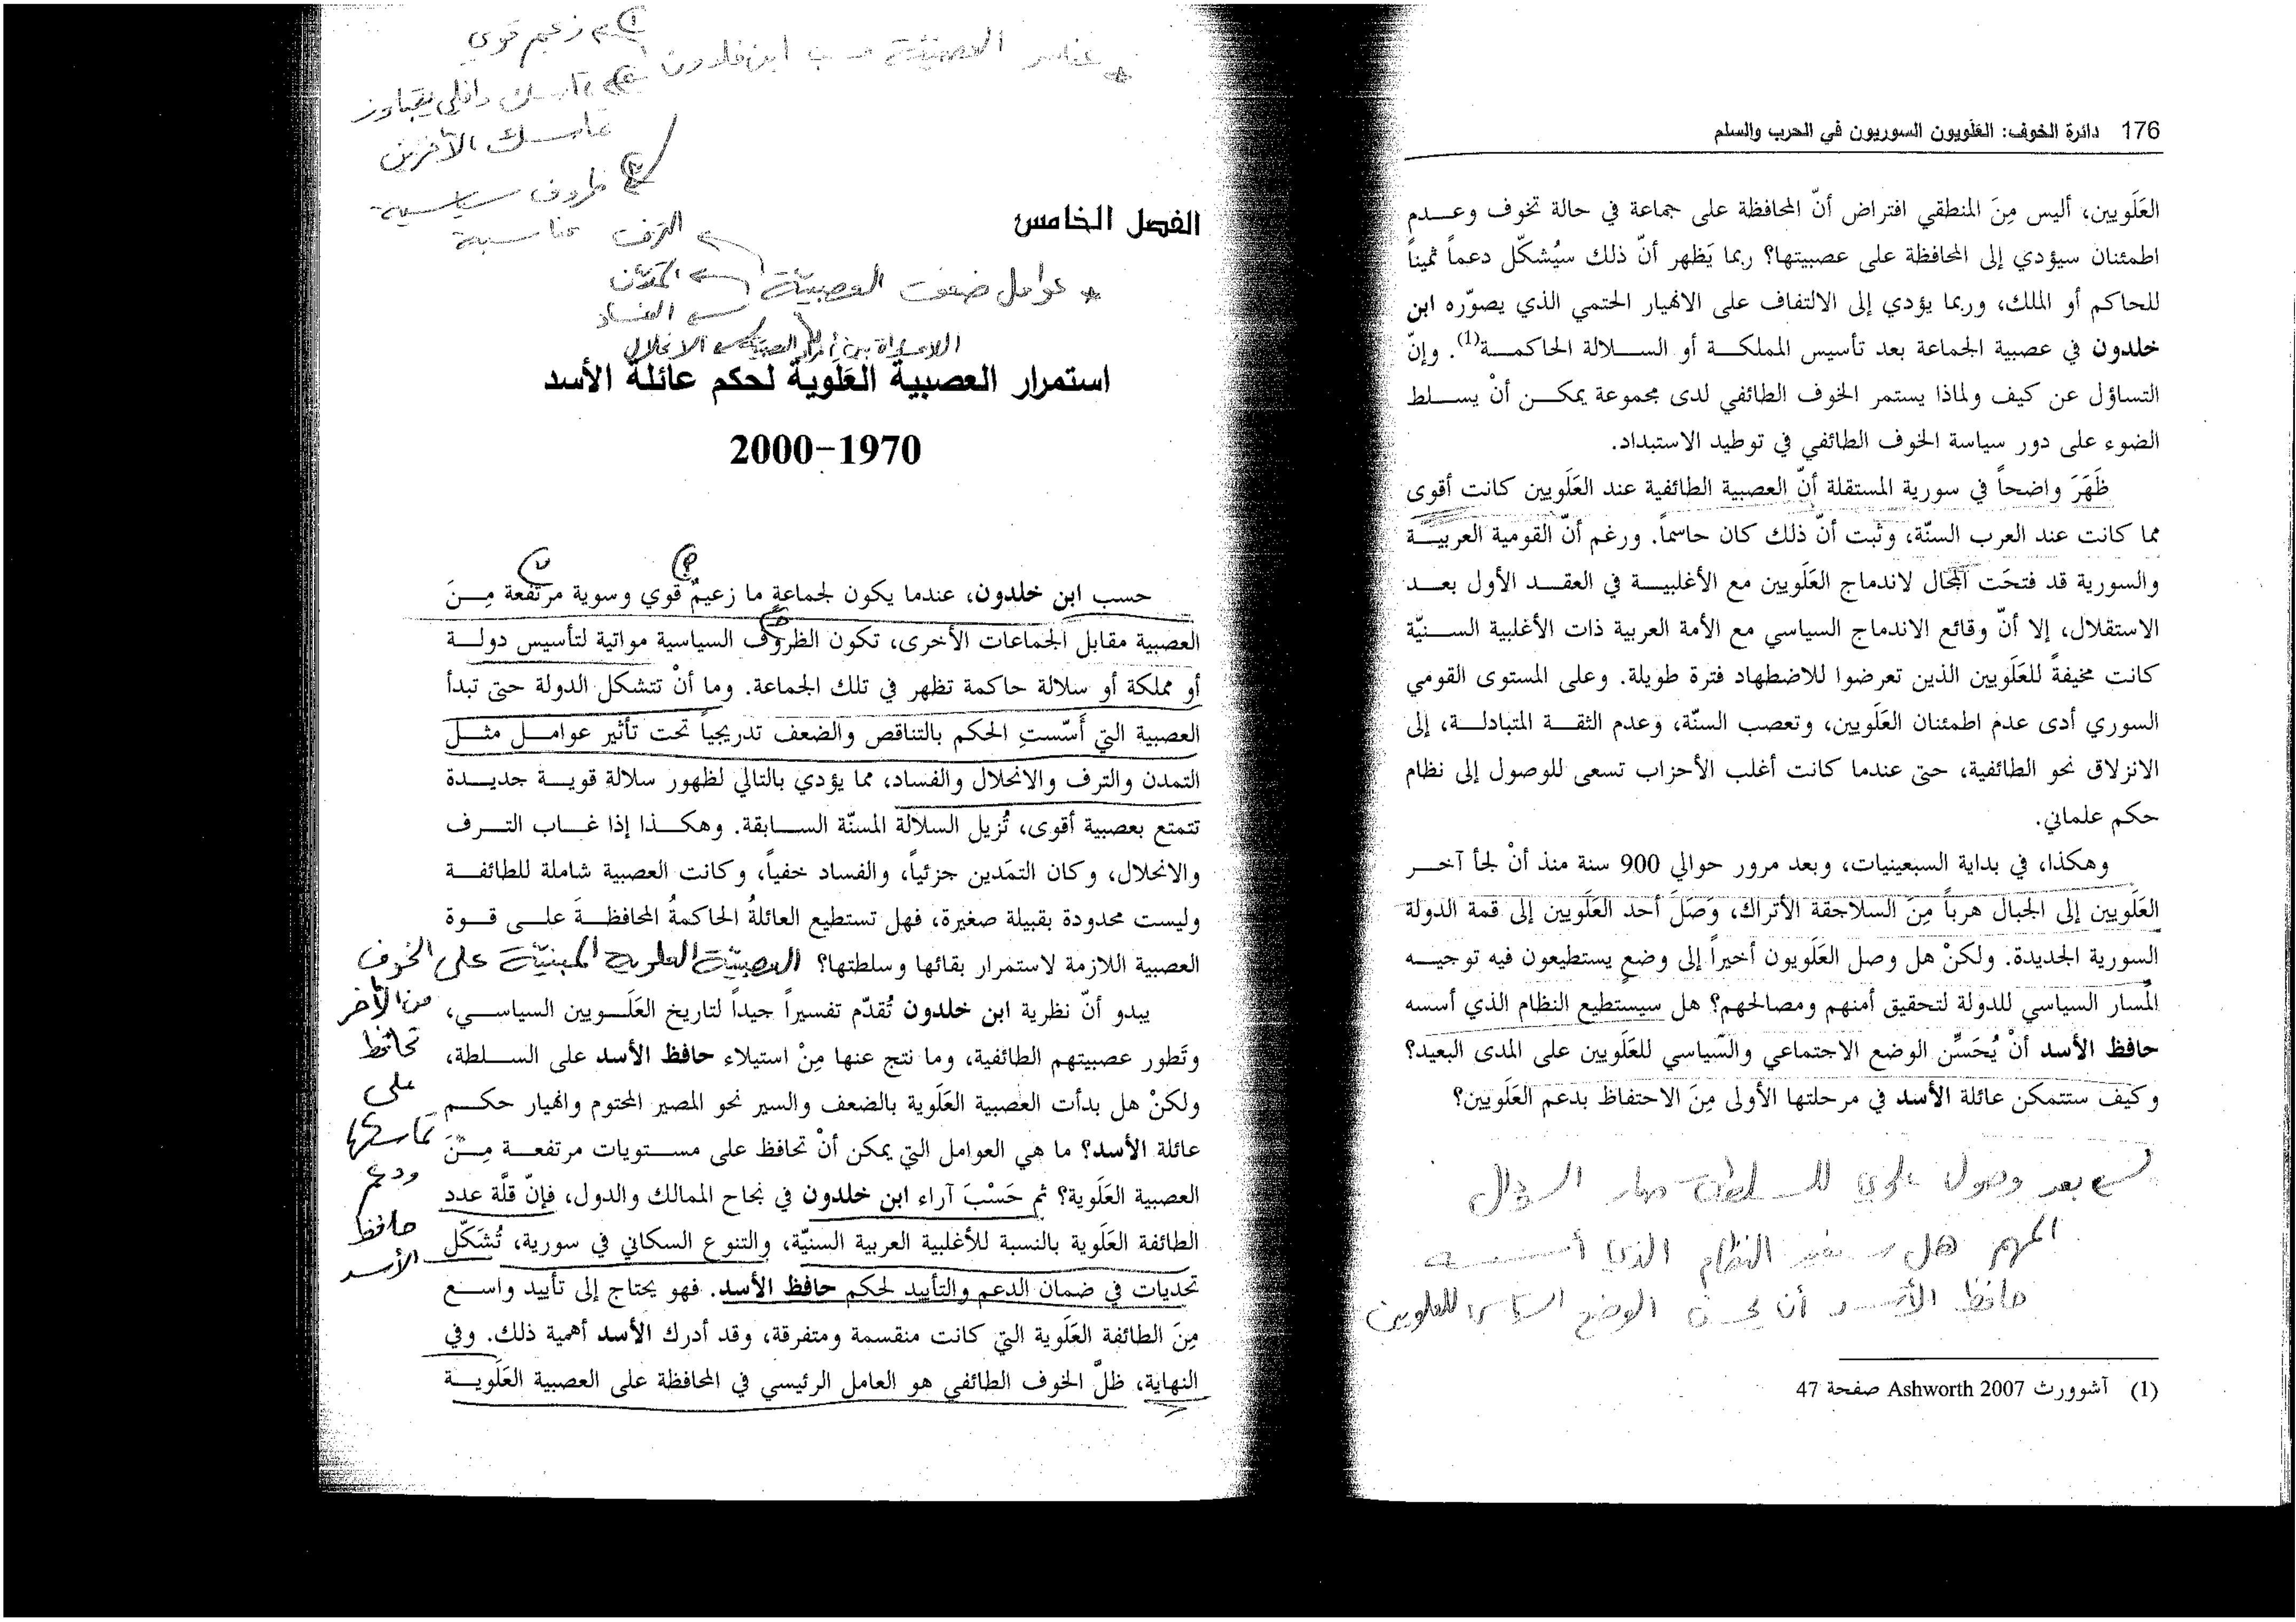 176 دائرة الخوف: العَلَويون السوريون في الحرب والسلم
العَلَويين، أليس مِنَ المنطقي افتراض أنّ المحافظة على جماعة في حالة تخوف وعـــدم
اطمئنان سيؤدي إلى المحافظة على عصبيتها؟ ربما يَظهر أنّ ذلك سيُشكّل دعماً ثميناً
للحاكم أو الملك، وربما يؤدي إلى الالتفاف على الانهيار الحتمي الذي يصوّره ابن
خلدون في عصبية الجماعة بعد تأسيس المملكــة أو الســـلالة الحاكمـــة(1). وإنّ
التساؤل عن كيف ولماذا يستمر الخوف الطائفي لدى مجموعة يمكـــن أنْ يســـلط
الضوء على دور سياسة الخوف الطائفي في توطيد الاستبداد.
ظَهَرَ واضحاً في سورية المستقلة أنّ العصبية الطائفية عند العَلَويين كانت أقوى
مما كانت عند العرب السنّة، وثبت أنّ ذلك كان حاسماً. ورغم أنّ القومية العربيـــة
والسورية قد فتحَت المجال لاندماج العَلَويين مع الأغلبيـــة في العقـــد الأول بعـــد
الاستقلال، إلا أنّ وقائع الاندماج السياسي مع الأمة العربية ذات الأغلبية الســـنيّة
كانت مخيفةً للعَلَويين الذين تعرضوا للاضطهاد فترة طويلة. وعلى المستوى القومي
السوري أدى عدم اطمئنان العَلَويين، وتعصب السنّة، وعدم الثقـــة المتبادلـــة، إلى
الانزلاق نحو الطائفية، حتى عندما كانت أغلب الأحزاب تسعى للوصول إلى نظام
حكم علماني.
وهكذا، في بداية السبعينيات، وبعد مرور حوالي 900 سنة منذ أنْ لجأ آخـــر
العَلَويين إلى الجبال هرباً مِنَ السلاجقة الأتراك، وَصَلَ أحد العَلَويين إلى قمة الدولة
السورية الجديدة. ولكنْ هل وصل العَلَويون أخيراً إلى وضعٍ يستطيعون فيه توجيـــه
المسار السياسي للدولة لتحقيق أمنهم ومصالحهم؟ هل سيستطيع النظام الذي أسسه
حافظ الأسد أنْ يُحَسِّن الوضع الاجتماعي والسّياسي للعَلَويين على المدى البعيد؟
وكيف ستتمكن عائلة الأسد في مرحلتها الأولى مِنَ الاحتفاظ بدعم العَلَويين؟
بعد وصول علوي للسلطة صار السؤال
المهم هل النظام الذي أسسه
حافظ الأسد أن يحسن الوضع السياسي للعلويين
(1) آشوورث Ashworth 2007 صفحة 47
* عناصر العصبيّة حسب ابن خلدون
① زعيم قوي
② تماسك داخلي يتجاوز
تماسك الآخرين
③ ظروف سياسية
مناسبة
الفصل الخامس
* عوامل ضعف العصبيّة
الترف
التمدّن
الفساد
الانحلال
استمرار العصبية العَلَوية لحكم عائلة الأسد
1970–2000
حسب ابن خلدون، عندما يكون لجماعةٍ ما زعيمٌ قوي وسوية مرتفعة مِـــنَ
العصبية مقابل الجماعات الأخرى، تكون الظروف السياسية مواتية لتأسيس دولـــة
أو مملكة أو سلالة حاكمة تظهر في تلك الجماعة. وما أنْ تتشكل الدولة حتى تبدأ
العصبية التي أَسّستِ الحكم بالتناقص والضعف تدريجياً تحت تأثير عوامـــل مثـــل
التمدن والترف والانحلال والفساد، مما يؤدي بالتالي لظهور سلالة قويـــة جديـــدة
تتمتع بعصبية أقوى، تُزيل السلالة المسنّة الســـابقة. وهكـــذا إذا غـــاب التـــرف
والانحلال، وكان التمَدين جزئياً، والفساد خفياً، وكانت العصبية شاملة للطائفـــة
وليست محدودة بقبيلة صغيرة، فهل تستطيع العائلةُ الحاكمةُ المحافظـــةَ علـــى قـــوة
العصبية اللازمة لاستمرار بقائها وسلطتها؟ العصبيّة العلوية المبنيّة على الخوف
من الآخر
تحافظ
على
تماسكها
ودعم
حافظ
الأسد
يبدو أنّ نظرية ابن خلدون تُقدّم تفسيراً جيداً لتاريخ العَلَـــويين السياســـي،
وتَطور عصبيتهم الطائفية، وما نتج عنها مِنْ استيلاء حافظ الأسد على الســـلطة،
ولكنْ هل بدأت العصبية العَلَوية بالضعف والسير نحو المصير المحتوم وانهيار حكـــم
عائلة الأسد؟ ما هي العوامل التي يمكن أنْ تحافظ على مســـتويات مرتفعـــة مِـــنَ
العصبية العَلَوية؟ ثم حَسْبَ آراء ابن خلدون في نجاح الممالك والدول، فإنّ قلّة عدد
الطائفة العَلَوية بالنسبة للأغلبية العربية السنيّة، والتنوع السكاني في سورية، تُشَكّل
تحديات في ضمان الدعم والتأييد لحكم حافظ الأسد. فهو يحتاج إلى تأييد واســـع
مِنَ الطائفة العَلَوية التي كانت منقسمة ومتفرقة، وقد أدرك الأسد أهمية ذلك. وفي
النهاية، ظلّ الخوف الطائفي هو العامل الرئيسي في المحافظة على العصبية العَلَويـــة